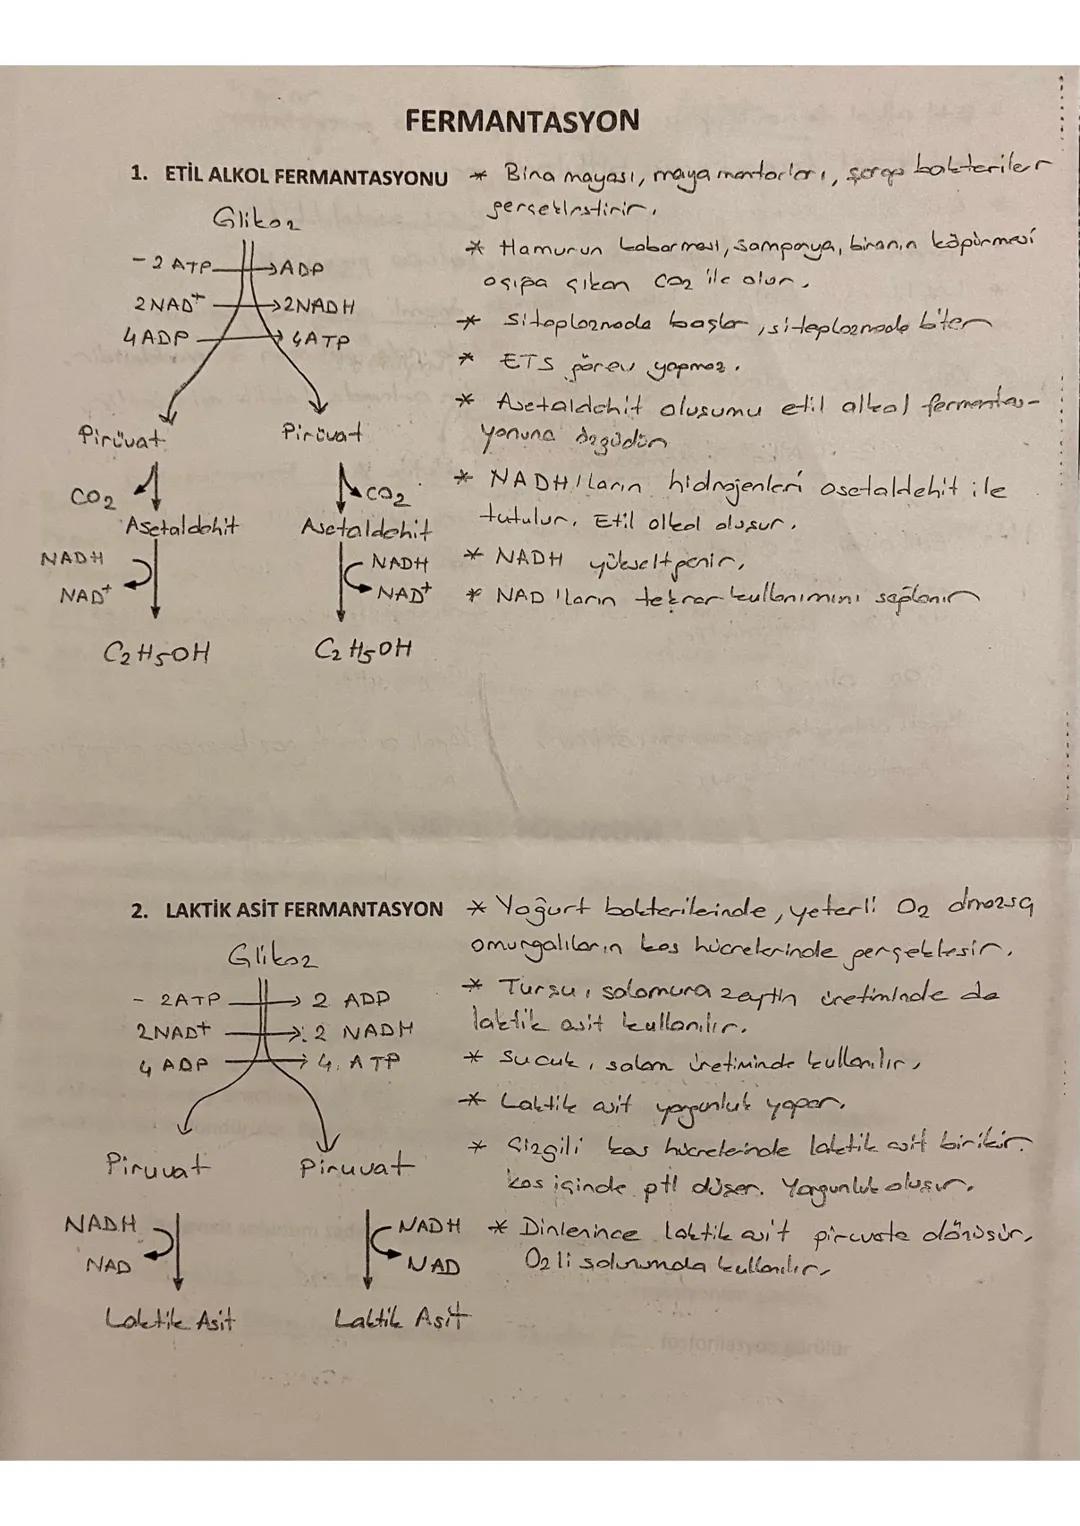 FERMANTASYON
1. ETİL ALKOL FERMANTASYONU
* Bira mayası, maya mantarları, şarap bakteriler
gerçekleştirir.
* Hamurun kabarması, şampanya, biranın köpürmesi
açığa çıkan CO2 ile olur.
* Sitoplazmada başlar, sitoplazmada biter
* ETS görev yapmaz.
* Asetaldehit oluşumu etil alkol fermentas-
yonuna özgüdür
* NADH'ların hidrojenleri asetaldehit ile
tutulur. Etil alkol oluşur.
* NADH yükseltgenir.
* NAD'ların tekrar kullanımını sağlanır
Glikoz
-2 ATP → ADP
2NAD+ → 2NADH
4 ADP → 4ATP
Pirüvat Pirüvat
CO2 CO2
Asetaldehit Asetaldehit
NADH NADH
NAD+ NAD+
C2H5OH C2H5OH
2. LAKTİK ASİT FERMANTASYON
* Yoğurt bakterilerinde, yeterli O2 olmazsa
omurgalıların kas hücrelerinde gerçekleşir.
* Turşu, salamura zeytin üretiminde de
laktik asit kullanılır.
* Sucuk, salam üretiminde kullanılır.
* Laktik asit yorgunluk yapar.
* Çizgili kas hücrelerinde laktik asit birikir.
Kas içinde pH düşer. Yorgunluk oluşur.
* Dinlenince laktik asit piruvata dönüşür.
O2 li solunumda kullanılır.
Glikoz
- 2ATP → 2 ADP
2NAD+ → 2 NADH
4 ADP → 4 ATP
Piruvat Piruvat
NADH NADH
NAD NAD
Laktik Asit Laktik Asit